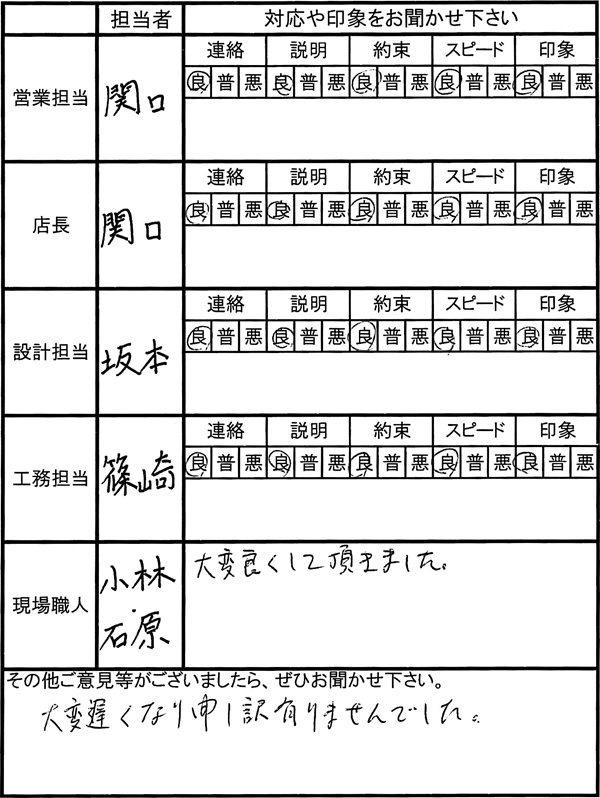 担当者 対応や印象をお聞かせ下さい
営業担当 関口 連絡 説明 約束 スピード 印象
良 普 悪 良 普 悪 良 普 悪 良 普 悪 良 普 悪
店長 関口 連絡 説明 約束 スピード 印象
良 普 悪 良 普 悪 良 普 悪 良 普 悪 良 普 悪
設計担当 坂本 連絡 説明 約束 スピード 印象
良 普 悪 良 普 悪 良 普 悪 良 普 悪 良 普 悪
工務担当 篠崎 連絡 説明 約束 スピード 印象
良 普 悪 良 普 悪 良 普 悪 良 普 悪 良 普 悪
現場職人 小林・石原 大変良くして頂きました。
その他ご意見等がございましたら、ぜひお聞かせ下さい。
大変遅くなり申し訳有りませんでした。